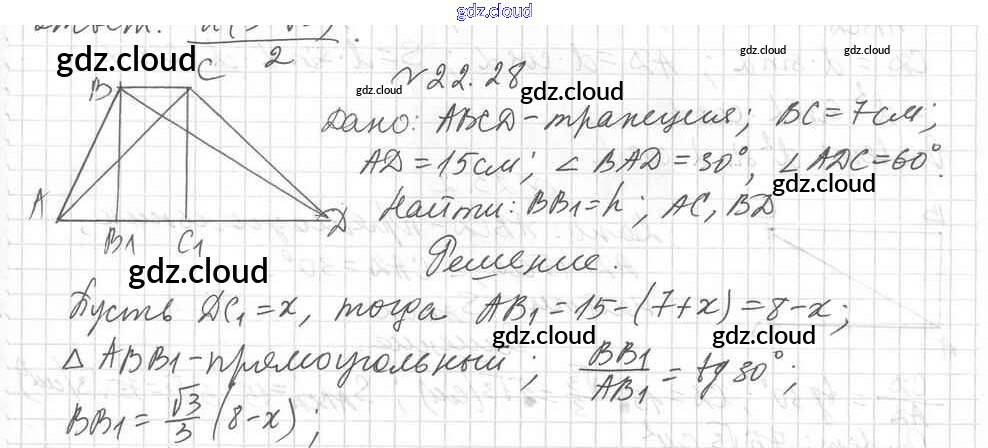 gdz.cloud
2
gdz.cloud
gdz.cloud gdz.cloud
№ 22.28
gdz.cloud gdz.cloud
Дано: ABCD - трапеция; BC = 7 см;
AD = 15 см; ∠ BAD = 30°; ∠ ADC = 60°.
gdz.cloud
Найти: BB1 = h; AC, BD
B C
A D
B1 C1
gdz.cloud
Решение.
Пусть DC1 = x, тогда AB1 = 15 - (7 + x) = 8 - x;
gdz.cloud gdz.cloud
△ ABB1 - прямоугольный; BB1/AB1 = tg 30°;
BB1 = √3/3 (8 - x);